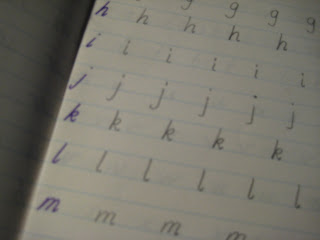 g g g g
h h h h h
i i i i i i
j j j j j j
k k k k k
l l l l l l
m m m m